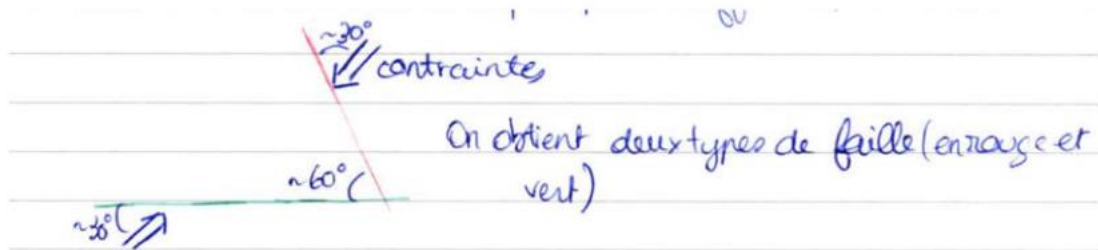 ou
~30°
contraintes
On obtient deux types de faille (en rouge et
vert)
~60°
~30°